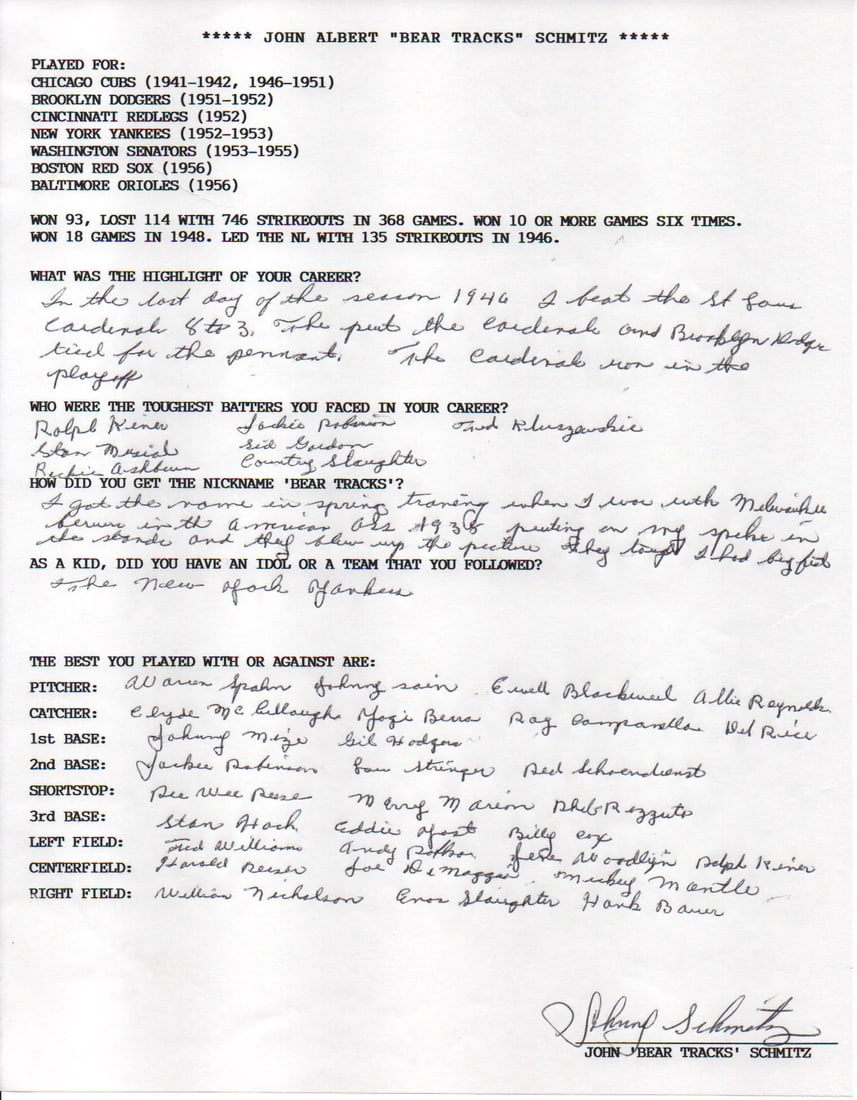 ***** JOHN ALBERT "BEAR TRACKS" SCHMITZ *****
PLAYED FOR:
CHICAGO CUBS (1941-1942, 1946-1951)
BROOKLYN DODGERS (1951-1952)
CINCINNATI REDLEGS (1952)
NEW YORK YANKEES (1952-1953)
WASHINGTON SENATORS (1953-1955)
BOSTON RED SOX (1956)
BALTIMORE ORIOLES (1956)
WON 93, LOST 114 WITH 746 STRIKEOUTS IN 368 GAMES. WON 10 OR MORE GAMES SIX TIMES.
WON 18 GAMES IN 1948. LED THE NL WITH 135 STRIKEOUTS IN 1946.
WHAT WAS THE HIGHLIGHT OF YOUR CAREER?
In the last day of the season 1946 I beat the St Louis
Cardinals 8 to 3. The put the Cardinals and Brooklyn Dodger
tied for the pennant. The Cardinals won in the
playoff
WHO WERE THE TOUGHEST BATTERS YOU FACED IN YOUR CAREER?
Ralph Kiner Jackie Robinson Ted Kluszewskie
Stan Musial Sid Gordon
Richie Ashburn Country Slaughter
HOW DID YOU GET THE NICKNAME 'BEAR TRACKS'?
I got the name in spring traning when I was with Milwaukee
in th American Ass 1938 puting on my spikes in
the stands and they blew up the picture they I had big feet
AS A KID, DID YOU HAVE AN IDOL OR A TEAM THAT YOU FOLLOWED?
The New York Yankees
THE BEST YOU PLAYED WITH OR AGAINST ARE:
PITCHER: Warren Spahn Johnny Sain Ewell Blackwell Allie Reynolds
CATCHER: Clyde McCullough Yogi Berra Roy Campanella Del Rice
1st BASE: Johnny Mize Gil Hodges
2nd BASE: Jackie Robinson Lou Stringer Red Schoendienst
SHORTSTOP: Pee Wee Reese Marty Marion Phil Rizzuto
3rd BASE: Stan Hack Eddie Yost Billy Cox
LEFT FIELD: Ted Williams Andy Pafko Gene Woodlyn Ralph Kiner
CENTERFIELD: Harold Reiser Joe DiMaggio Mickey Mantle
RIGHT FIELD: William Nicholson Enos Slaughter Hank Bauer
Johnny Schmitz
JOHN 'BEAR TRACKS' SCHMITZ